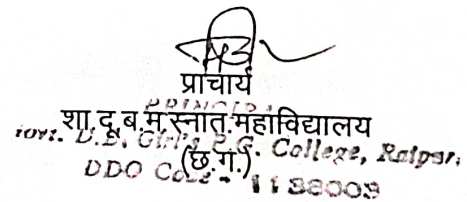 प्राचार्य
PRINCIPAL
शा.दू.ब.म.स्नात.महाविद्यालय
Govt. D.B. Girl's P.G. College, Raipur.
(छ.ग.)
DDO Code - 1138009